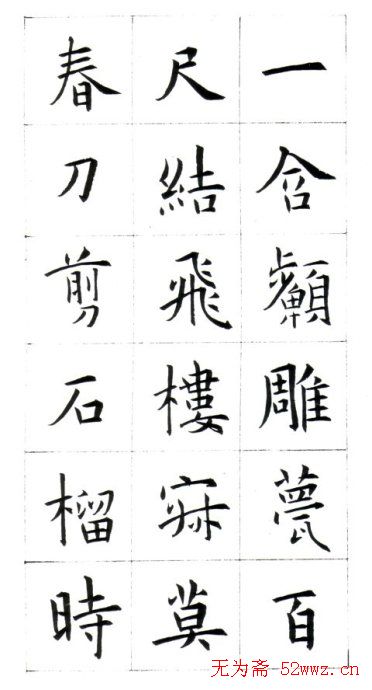 一含顰雕甍百
尺結飛樓寂莫
春刀剪石榴時
无为斋 52wwz.cn